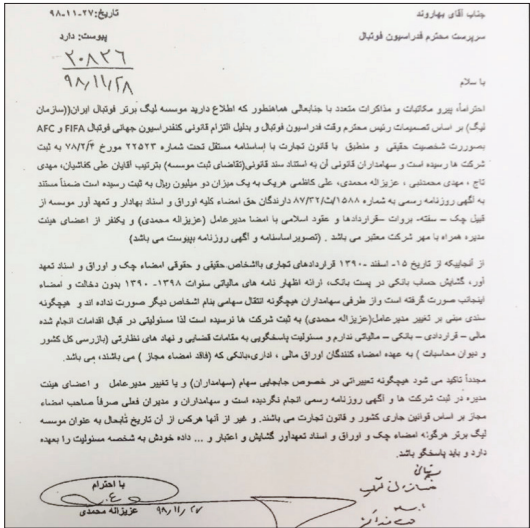 تاریخ:۲۷-۱۱-۹۸
جناب آقای بهاروند
پیوست: دارد
سرپرست محترم فدراسیون فوتبال
۲۰۸۲۶
۹۸/۱۱/۲۸
با سلام
احتراماً، پیرو مکاتبات و مذاکرات متعدد با جنابعالی هماهنطور که اطلاع دارید موسسه لیگ برتر فوتبال ایران((سازمان
لیگ) بر اساس تصمیمات رئیس محترم وقت فدراسیون فوتبال و بدلیل التزام قانونی کنفدراسیون جهانی فوتبال FIFA و AFC
بصوررت شخصیت حقیقی و منطبق با قانون تجارت با اساسنامه مستقل تحت شماره ۲۲۵۲۳ مورخ ۷۸/۲/۴ به ثبت
شرکت ها رسیده است و سهامداران قانونی آن به استناد سند قانونی(تقاضای ثبت موسسه) بترتیب آقایان علی کفاشیان، مهدی
تاج ، مهدی محمدنبی ، عزیزاله محمدی، علی کاظمی هریک به یک میزان دو میلیون ریال به ثبت رسیده است ضمناً مستند
به آگهی روزنامه رسمی به شماره ۸۷/۳۲/ث/۱۵۸۸ دارندگان حق امضاء کلیه اوراق و اسناد بهادار و تعهد آور موسسه از
قبیل چک – سفته، بروات –قراردادها و عقود اسلامی با امضا مدیرعامل (عزیزاله محمدی) و یکنفر از اعضای هیئت
مدیره همراه با مهر شرکت معتبر می باشد . (تصویراساسنامه و آگهی روزنامه بپیوست می باشد)
از آنجاییکه از تاریخ ۱۵- اسفند ۱۳۹۰- قراردادهای تجاری بااشخاص حقیقی و حقوقی امضاء چک و اوراق و اسناد تعهد
آور، گشایش حساب بانکی در پست بانک، ارائه اظهار نامه های مالیاتی سنوات ۱۳۹۸- ۱۳۹۰ بدون دخالت و امضاء
اینجانب صورت گرفته است واز طرفی سهامداران هیچگونه انتقال سهامی بنام اشخاص دیگر صورت نداده اند و هیچگونه
سندی مبنی بر تغییر مدیرعامل(عزیزاله محمدی) به ثبت شرکت ها نرسیده است لذا مسئولیتی در قبال اقدامات انجام شده
مالی – قراردادی – بانکی – مالیاتی ندارم و مسئولیت پاسخگویی به مقامات قضایی و نهاد های نظارتی (بازرسی کل کشور
و دیوان محاسبات ) به عهده امضاء کنندگان اوراق مالی ، اداری،بانکی که (فاقد امضاء مجاز ) می باشند، می باشد.
مجدداً تاکید می شود هیچگونه تعییراتی در خصوص جابجایی سهام (سهامداران) و یا تغییر مدیرعامل و اعضای هیئت
مدیره در ثبت شرکت ها و آگهی روزنامه رسمی انجام نگردیده است و سهامداران و مدیران فعلی صرفاً صاحب امضاء
مجاز بر اساس قوانین جاری کشور و قانون تجارت می باشند. و غیر از آنها هرکس از آن تاریخ تابحال به عنوان موسسه
لیگ برتر هرگونه امضاء چک و اوراق و اسناد تعهدآور گشایش و اعتبار و ... داده خودش به شخصه مسئولیت را بعهده
دارد و باید پاسخگو باشد.
با احترام
عزیزاله محمدی
۹۸/۱۱/۲۷